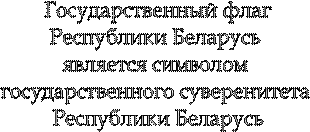 Государственный флаг
Республики Беларусь
является символом
государственного суверенитета
Республики Беларусь